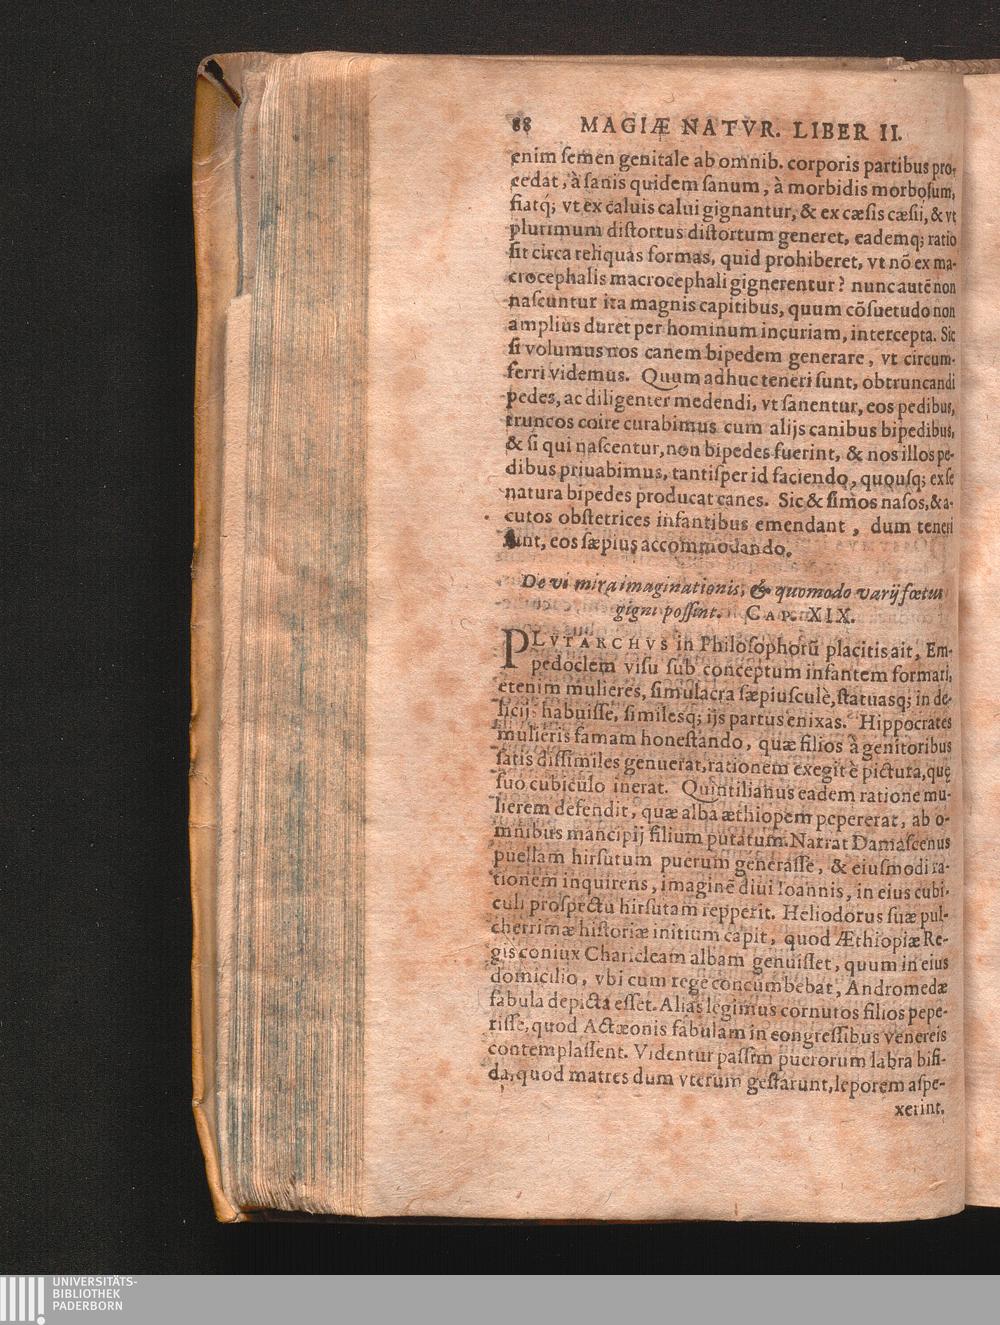 88 MAGIÆ NATVR. LIBER II.
enim ſemen genitale ab omnib. corporis partibus pro-
cedat, à ſanis quidem ſanum, à morbidis morboſum,
fiatq́; vt ex caluis calui gignantur, & ex cæſis cæſii, & vt
plurimum diſtortus diſtortum generet, eademq; ratio
ſit circa reliquas formas, quid prohiberet, vt nō ex ma-
crocephalis macrocephali gignerentur? nunc autē non
naſcuntur ita magnis capitibus, quum cōſuetudo non
amplius duret per hominum incuriam, intercepta. Sic
ſi volumus nos canem bipedem generare, vt circum-
ferri videmus. Quum adhuc teneri ſunt, obtruncandi
pedes, ac diligenter medendi, vt ſanentur, eos pedibus,
truncos coire curabimus cum alijs canibus bipedibus,
& ſi qui naſcentur, non bipedes fuerint, & nos illos pe-
dibus priuabimus, tantiſper id faciendo, quouſq; ex ſe
natura bipedes producat canes. Sic & ſimos naſos, & a-
cutos obſtetrices infantibus emendant, dum teneri
ſunt, eos ſæpius accommodando.
De vi mira imaginationis, & quomodo varij fœtus
gigni poſſint. CAP. XIX.
PLVTARCHVS in Philoſophorū placitis ait, Em-
pedoclem viſu ſub conceptum infantem formari,
etenim mulieres, ſimulacra ſæpiuſculè, ſtatuasq; in de-
licijs habuiſſe, ſimilesq; ijs partus enixas. Hippocrates
mulieris famam honeſtando, quæ filios à genitoribus
ſatis diſſimiles genuerat, rationem exegit è pictura, quę
ſuo cubiculo inerat. Quintilianus eadem ratione mu-
lierem defendit, quæ alba æthiopem pepererat, ab o-
mnibus mancipij filium putatum. Narrat Damaſcenus
puellam hirſutum puerum generaſſe, & eiuſmodi ra-
tionem inquirens, imaginē diui Ioannis, in eius cubi-
culi proſpectu hirſutam repperit. Heliodorus ſuæ pul-
cherrimæ hiſtoriæ initium capit, quod Æthiopiæ Re-
gis coniux Charicleam albam genuiſſet, quum in eius
domicilio, vbi cum rege concumbebat, Andromedæ
fabula depicta eſſet. Alias legimus cornutos filios pepe-
riſſe, quod Actæonis fabulam in congreſſibus venereis
contemplaſſent. Videntur paſſim puerorum labra biſi-
da, quod matres dum vterum geſtarunt, leporem aſpe-
xerint.
UNIVERSITÄTS-
BIBLIOTHEK
PADERBORN